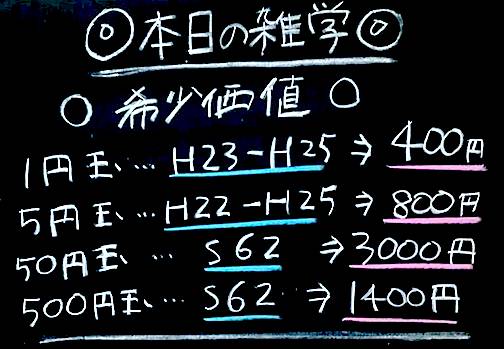 ◎本日の雑学◎
○ 希少価値 ○
1円玉、… H23-H25 ⇒ 400円
5円玉、… H22-H25 ⇒ 800円
50円玉、… S62 ⇒ 3000円
500円玉、… S62 ⇒ 1400円